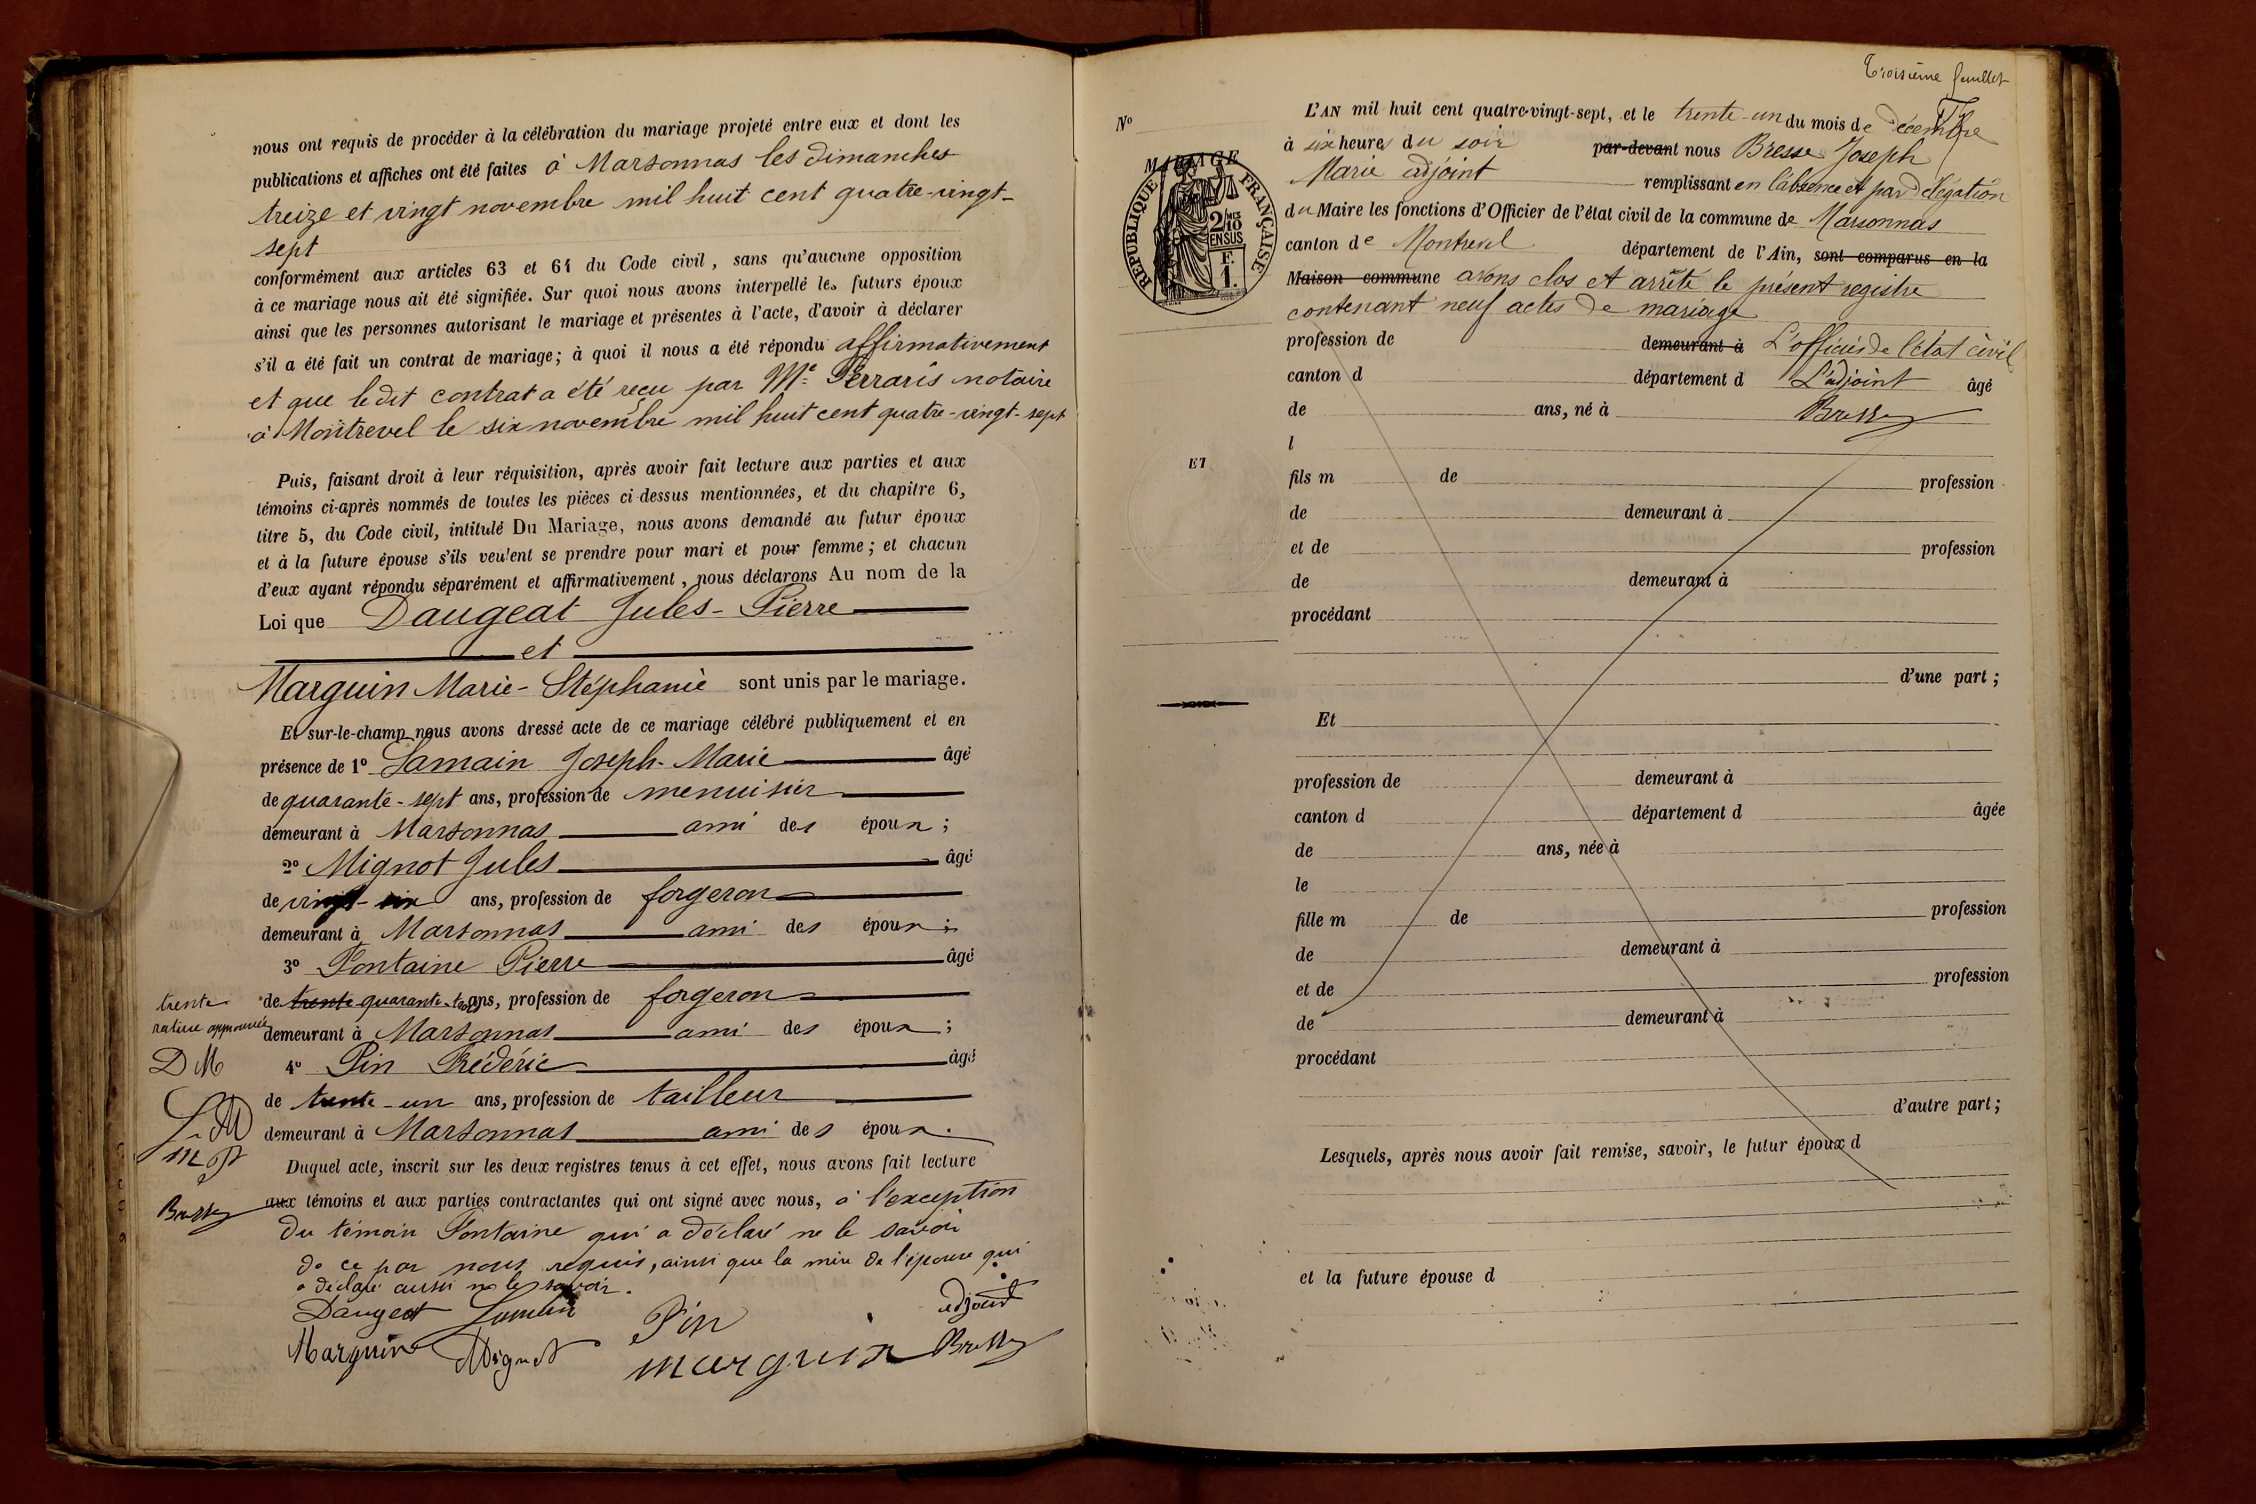 nous ont requis de procéder à la célébration du mariage projeté entre eux et dont les
publications et affiches ont été faites à Marsonnas les dimanches
treize et vingt novembre mil huit cent quatre-vingt-
sept
conformément aux articles 63 et 64 du Code civil, sans qu'aucune opposition
à ce mariage nous ait été signifiée. Sur quoi nous avons interpellé les futurs époux
ainsi que les personnes autorisant le mariage et présentes à l'acte, d'avoir à déclarer
s'il a été fait un contrat de mariage; à quoi il nous a été répondu affirmativement
et que le dit contrat a été reçu par Me Ferraris notaire
à Montrevel le six novembre mil huit cent quatre-vingt-sept
Puis, faisant droit à leur réquisition, après avoir fait lecture aux parties et aux
témoins ci-après nommés de toutes les pièces ci-dessus mentionnées, et du chapitre 6,
titre 5, du Code civil, intitulé Du Mariage, nous avons demandé au futur époux
et à la future épouse s'ils veulent se prendre pour mari et pour femme; et chacun
d'eux ayant répondu séparément et affirmativement, nous déclarons Au nom de la
Loi que Daugeat Jules-Pierre
et
Marguin Marie-Stéphanie sont unis par le mariage.
Et sur-le-champ nous avons dressé acte de ce mariage célébré publiquement et en
présence de 1º Lamain Joseph-Marie âgé
de quarante-sept ans, profession de menuisier
demeurant à Marsonnas ami des époux;
2º Mignot Jules âgé
de vingt-six ans, profession de forgeron
demeurant à Marsonnas ami des époux;
3º Fontaine Pierre âgé
de trente quarante-trois ans, profession de forgeron
demeurant à Marsonnas ami des époux;
4º Pin Frédéric âgé
de trente-un ans, profession de tailleur
demeurant à Marsonnas ami des époux.
Duquel acte, inscrit sur les deux registres tenus à cet effet, nous avons fait lecture
aux témoins et aux parties contractantes qui ont signé avec nous, à l'exception
du témoin Fontaine qui a déclaré ne le savoir
de ce par nous requis, ainsi que la mère de l'épouse qui
a déclaré aussi ne le savoir.
Daugeat Lamain Pin adjoint
Marguin Mignot marguin Bresse
trente
rature approuvée
D M
L M
m P
Bresse
Troisième feuillet
Nº
MARIAGE
REPUBLIQUE FRANÇAISE
2/10
EN SUS
F.
1.
ET
L'AN mil huit cent quatre-vingt-sept, et le trente-un du mois de décembre
à six heures du soir par-devant nous Bresse Joseph
Marie adjoint remplissant en l'absence et par délégation
du Maire les fonctions d'Officier de l'état civil de la commune de Marsonnas
canton de Montrevel département de l'Ain, sont comparus en la
Maison commune avons clos et arrêté le présent registre
contenant neuf actes de mariage
profession de demeurant à L'officier de l'état civil
canton d département d L'adjoint âgé
de ans, né à Bresse
l
fils m de profession
de demeurant à
et de profession
de demeurant à
procédant
d'une part;
Et
profession de demeurant à
canton d département d âgée
de ans, née à
le
fille m de profession
de demeurant à
et de profession
de demeurant à
procédant
d'autre part;
Lesquels, après nous avoir fait remise, savoir, le futur époux d
et la future épouse d